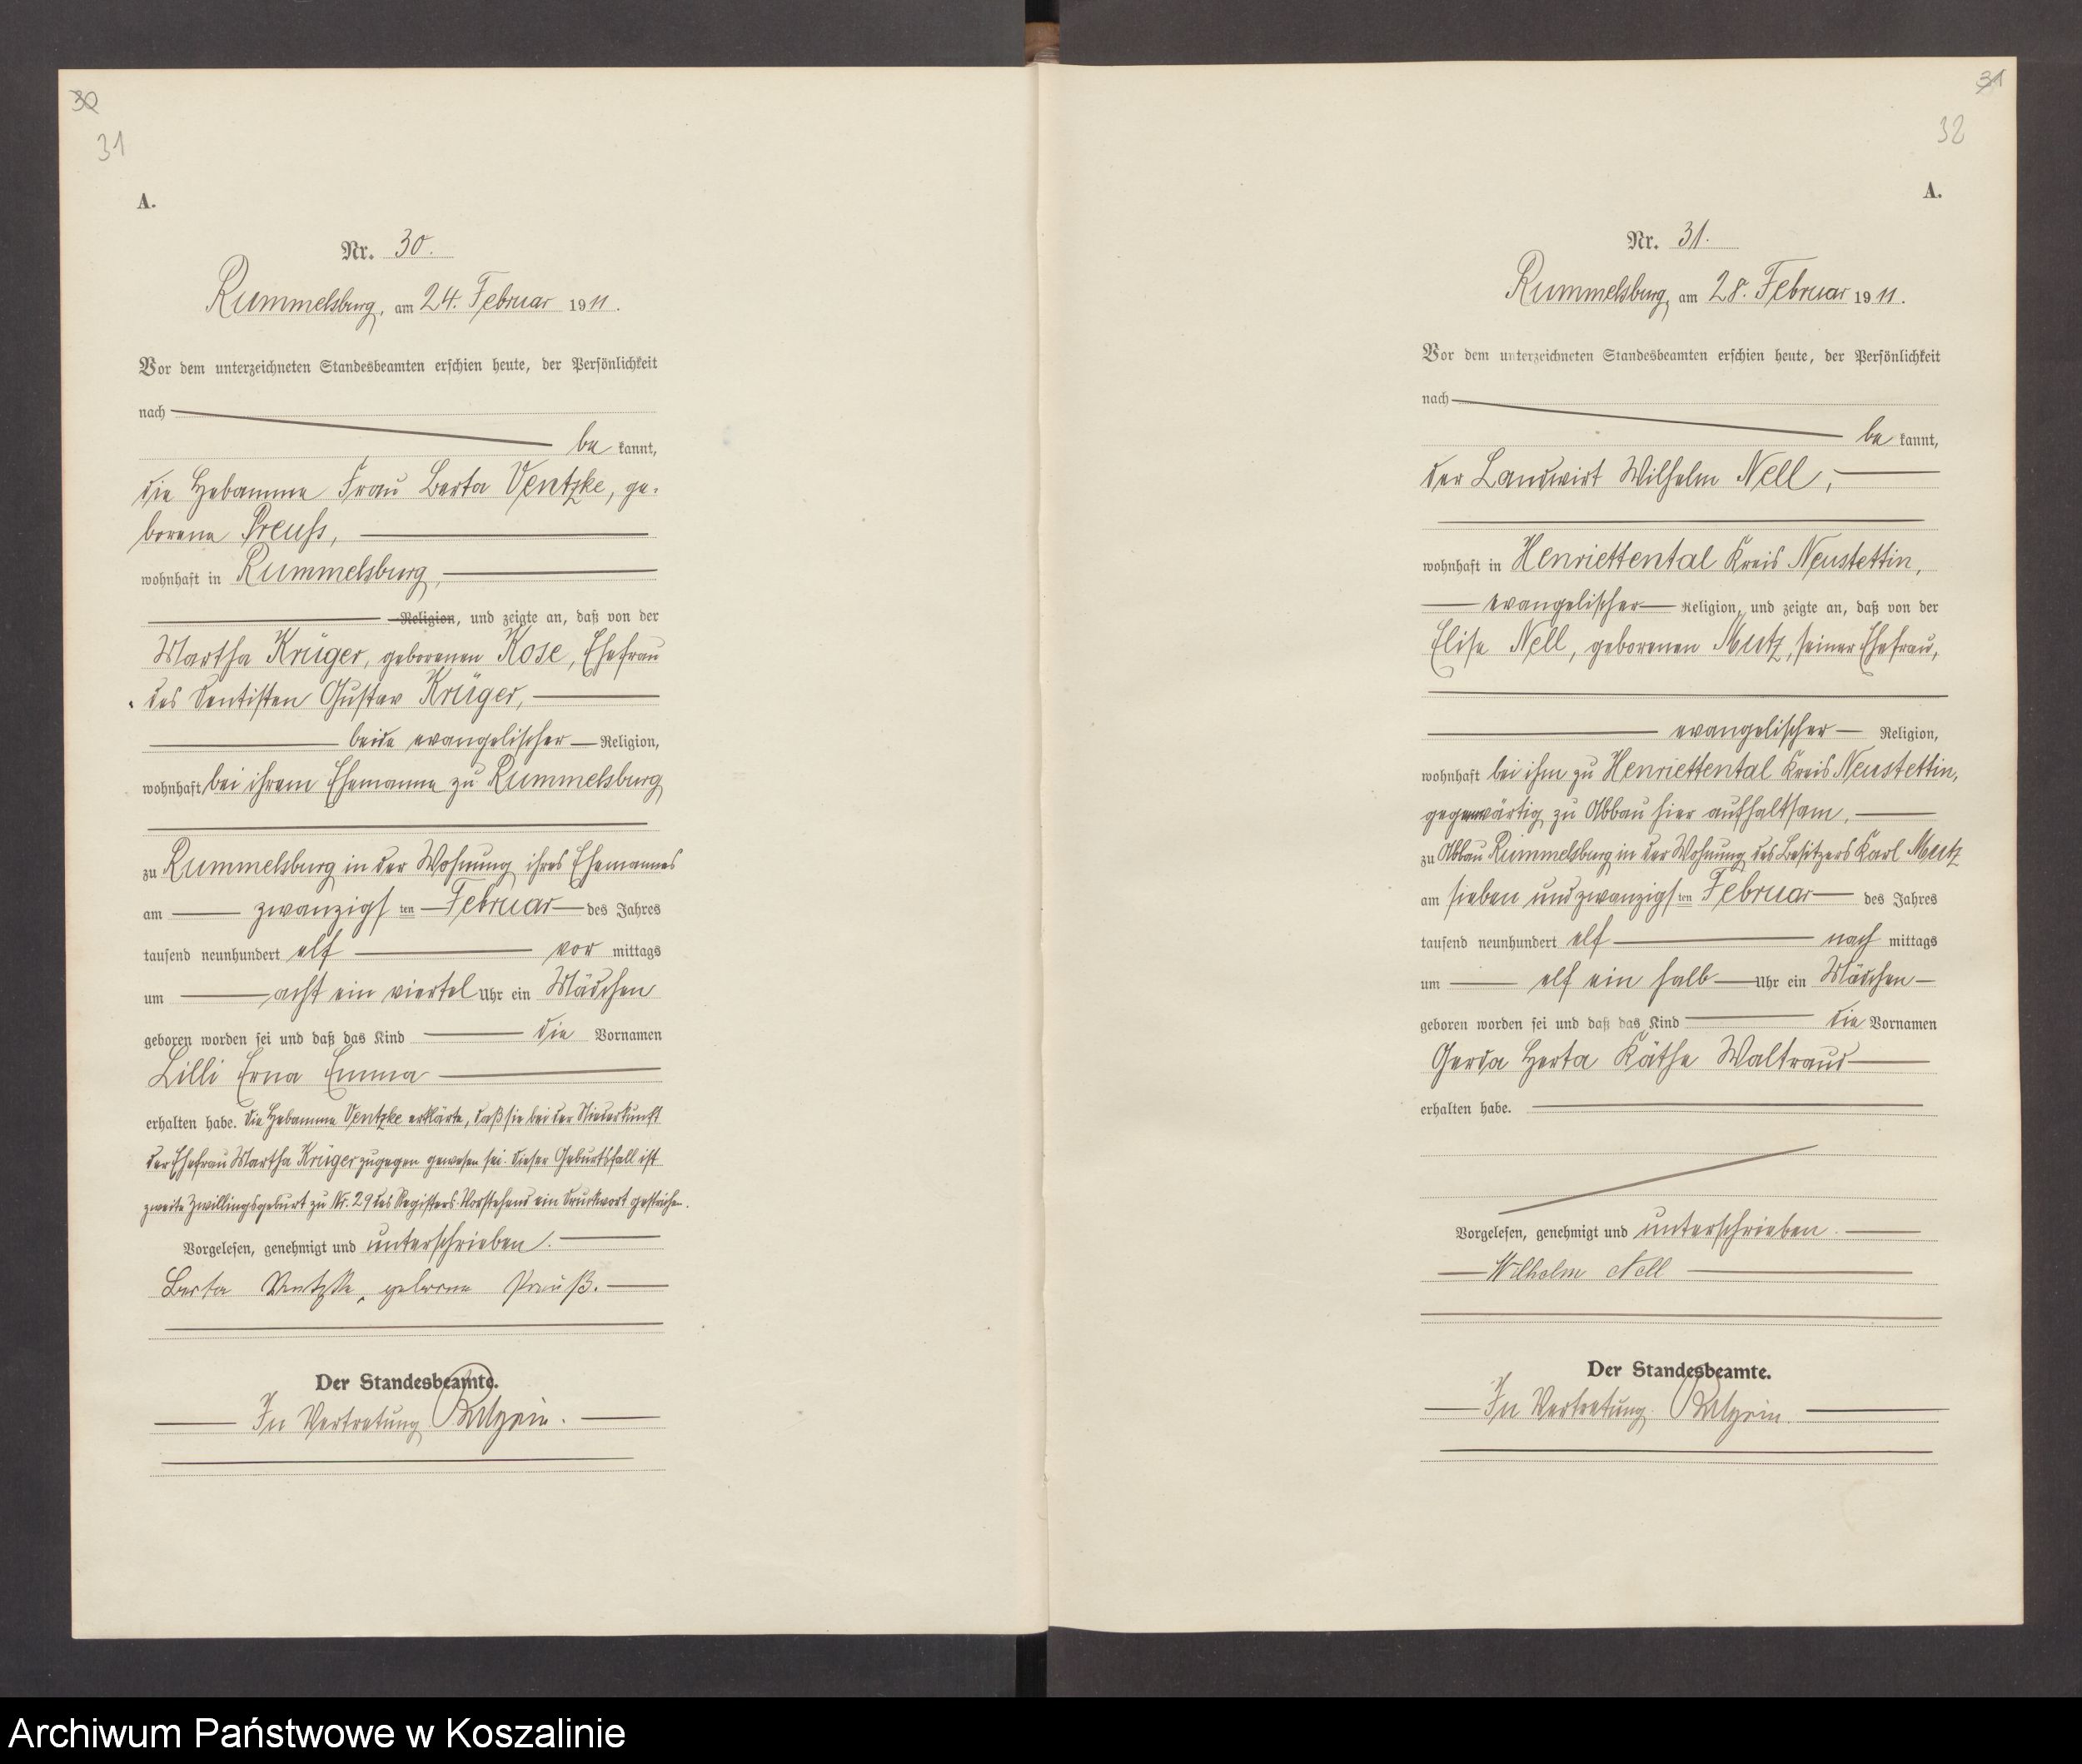 30
31
A.
Nr. 30.
Rummelsburg, am 24. Februar 1911.
Vor dem unterzeichneten Standesbeamten erschien heute, der Persönlichkeit
nach
be kannt,
die Hebamme Frau Berta Ventzke, ge-
borene Preuß,
wohnhaft in Rummelsburg,
Religion, und zeigte an, daß von der
Martha Krüger, geborenen Kose, Ehefrau
des Dentisten Gustav Krüger,
beide evangelischer Religion,
wohnhaft bei ihrem Ehemanne zu Rummelsburg
zu Rummelsburg in der Wohnung ihres Ehemannes
am zwanzigsten Februar des Jahres
tausend neunhundert elf vor mittags
um acht ein viertel Uhr ein Mädchen
geboren worden sei und daß das Kind die Vornamen
Lilli Erna Emma
erhalten habe. Die Hebamme Ventzke erklärte, daß sie bei der Niederkunft
der Ehefrau Martha Krüger zugegen gewesen sei. Dieser Geburtsfall ist
zweite Zwillingsgeburt zu Nr. 29 des Registers. Vorstehend ein Druckwort gestrichen.
Vorgelesen, genehmigt und unterschrieben.
Berta Ventzke, geborene Preuß.
Der Standesbeamte.
In Vertretung
31
32
A.
Nr. 31.
Rummelsburg, am 28. Februar 1911.
Vor dem unterzeichneten Standesbeamten erschien heute, der Persönlichkeit
nach
be kannt,
der Landwirt Wilhelm Nell,
wohnhaft in Henriettental Kreis Neustettin,
evangelischer Religion, und zeigte an, daß von der
Elise Nell, geborenen Mutz, seiner Ehefrau,
evangelischer Religion,
wohnhaft bei ihm zu Henriettental Kreis Neustettin,
gegenwärtig zu Abbau hier aufhaltsam,
zu Abbau Rummelsburg in der Wohnung des Besitzers Karl Mutz
am sieben und zwanzigsten Februar des Jahres
tausend neunhundert elf nach mittags
um elf ein halb Uhr ein Mädchen
geboren worden sei und daß das Kind die Vornamen
Gerda Herta Käthe Waltraud
erhalten habe.
Vorgelesen, genehmigt und unterschrieben.
Wilhelm Nell
Der Standesbeamte.
In Vertretung
Archiwum Państwowe w Koszalinie